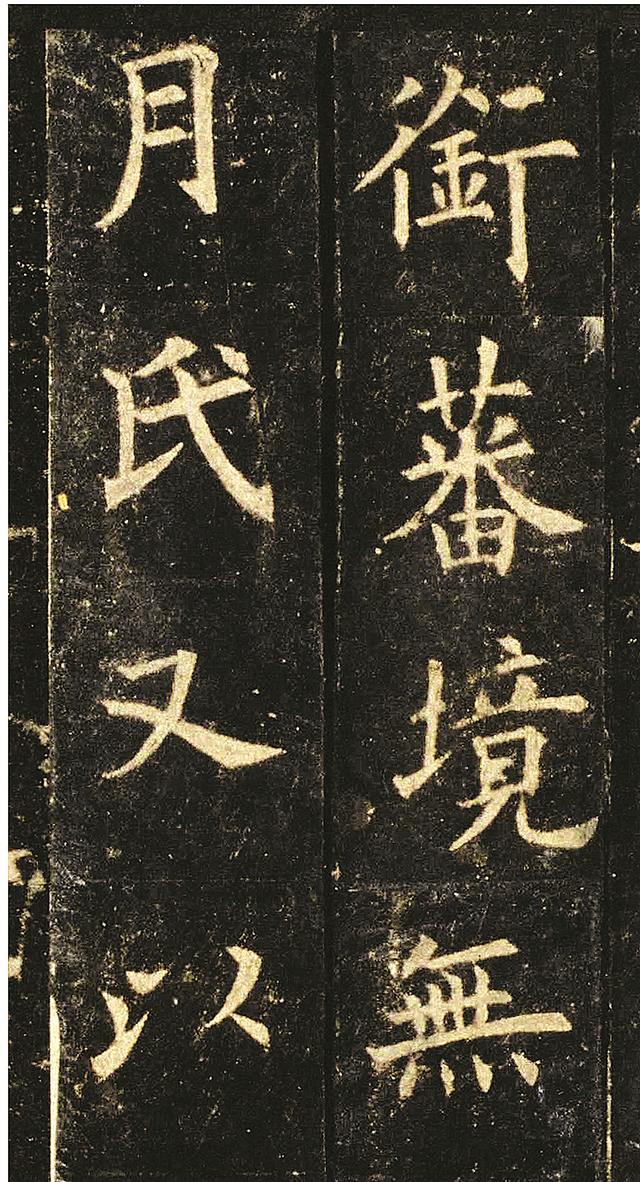 銜蕃境無
月氏又以